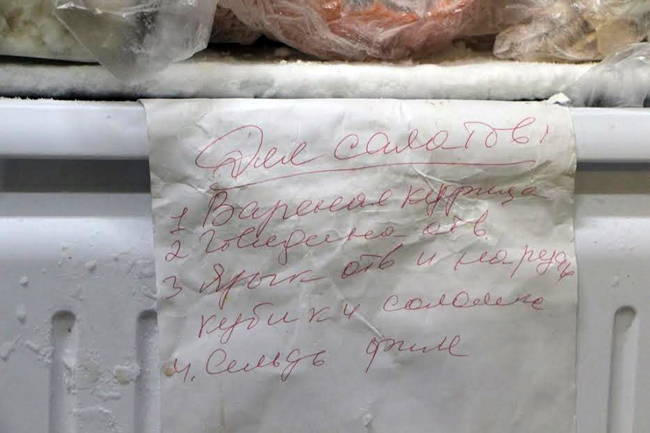 Для салатов:
1 Вареная курица
2 Говядина отв.
3 Язык отв и нарезь
кубики соломка
4. Сельдь филе